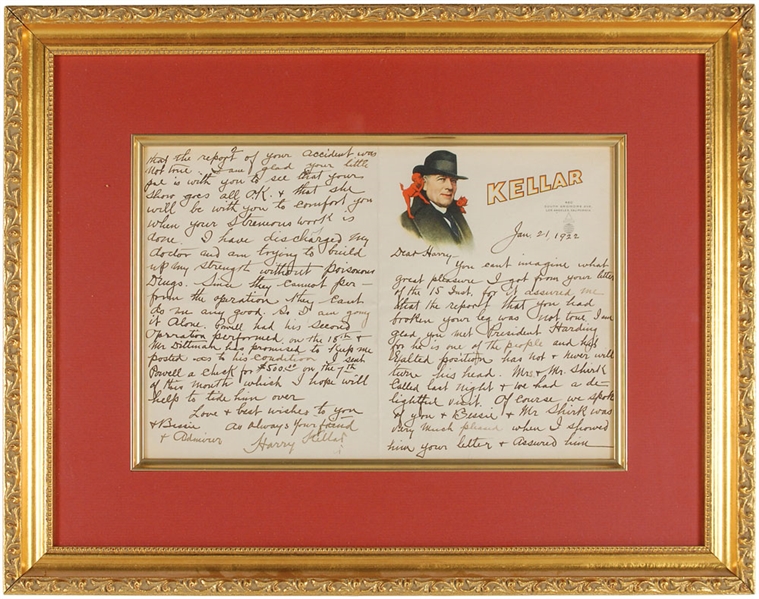 KELLAR
Jan. 21, 1922
Dear Harry
You cant imagine what
great pleasure I got from your letter
of the 15 Inst. for it assured me
that the report that you had
broken your leg was not true I am
glad you met President Harding
for he is one of the people and his
Exalted position has not & never will
turn his head. Mr & Mrs. Shirk
Called last night & we had a de-
lightful visit. Of course we spoke
of you & Bessie & Mr Shirk was
very much pleased when I showed
him your letter & Assured him
that the report of your accident was
Not true. I am glad your little
gie is with you to see that your
Show goes all O.K. & that she
will be with you to comfort you
when your Strenuous work is
done. I have discharged my
doctor and am trying to build
up my strength without Poisonous
Drugs. Since they cannot per-
form the operation they cant
do me any good. So I am going
it Alone. Powell had his second
Operation performed on the 18th &
Mr Dittman has promised to Keep me
posted as to his condition I sent
Powell a check for $500.00 on the 7th
of this month which I hope will
help to tide him over
Love & best wishes to you
& Bessie as always your friend
& Admirer Harry Kellar